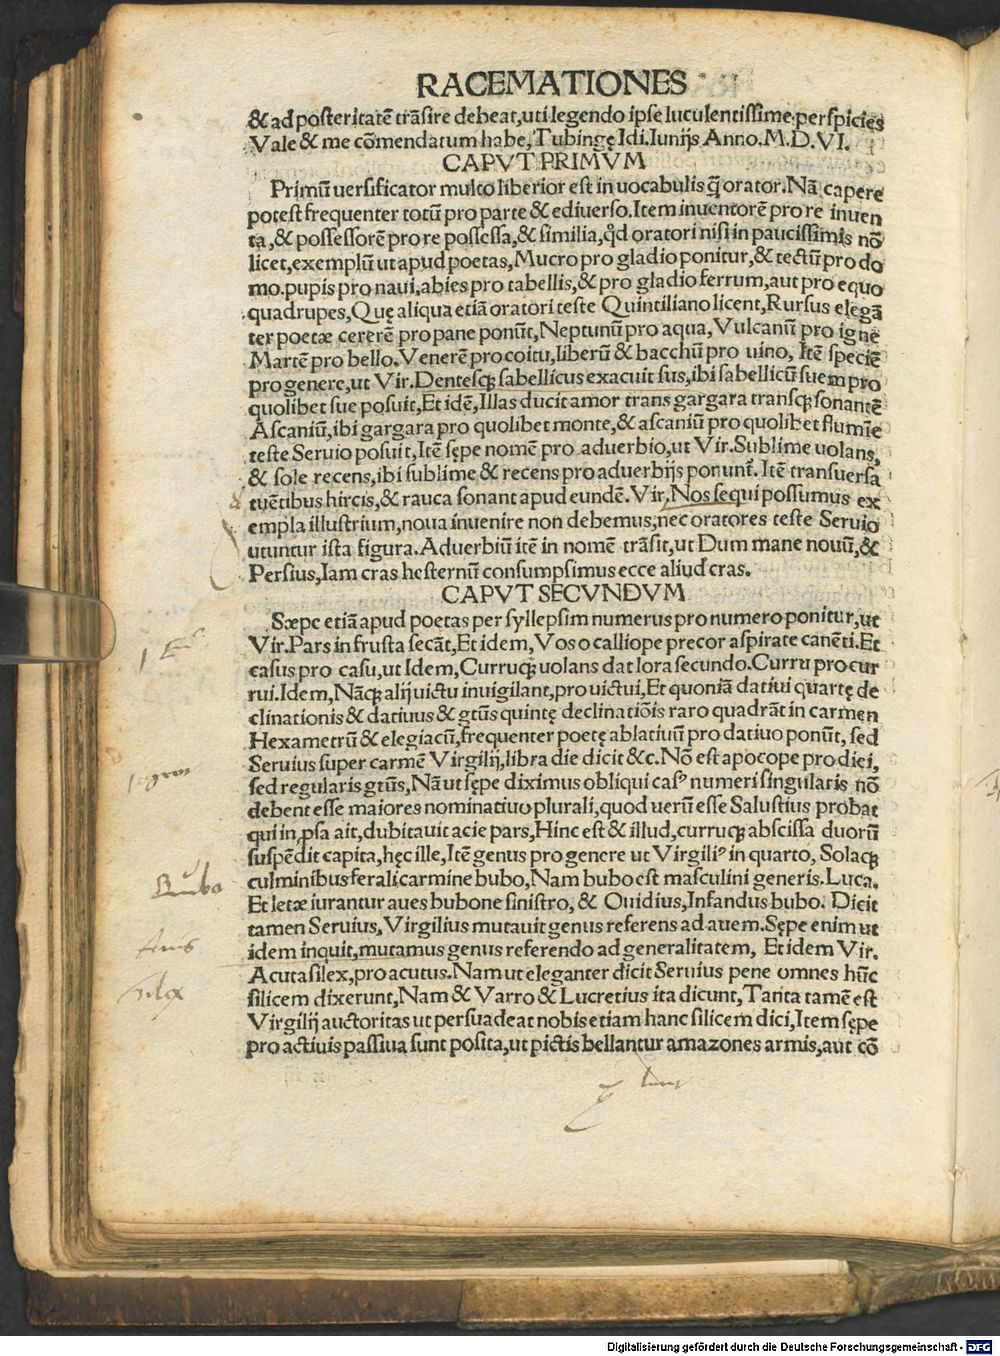 RACEMATIONES
& ad posteritatē trāsire debeat, uti legendo ipse luculentissime perspicies
Vale & me cōmendatum habe, Tubingę Idi. Iunijs Anno. M. D. VI.
CAPVT PRIMVM
Primū uersificator multo liberior est in uocabulis q̃ orator. Nā capere
potest frequenter totū pro parte & ediuerso. Item inuentorē pro re inuen
ta, & possessorē pro re possessa, & similia, qd̕ oratori nisi in paucissimis nō
licet, exemplū ut apud poetas, Mucro pro gladio ponitur, & tectū pro do
mo. pupis pro naui, abies pro tabellis, & pro gladio ferrum, aut pro equo
quadrupes, Quę aliqua etiā oratori teste Quintiliano licent, Rursus elegā
ter poetæ cererē pro pane ponūt, Neptunū pro aqua, Vulcanū pro igne
Martē pro bello. Venerē pro coitu, liberū & bacchū pro uino, Itē speciē
pro genere, ut Vir. Dentesq; sabellicus exacuit sus, ibi sabellicū suem pro
quolibet sue posuit, Et idē, Illas ducit amor trans gargara transq; sonantē
Ascaniū, ibi gargara pro quolibet monte, & ascaniū pro quolibet flumīe
teste Seruio posuit, Itē sępe nomē pro aduerbio, ut Vir. Sublime uolans,
& sole recens, ibi sublime & recens pro aduerbijs ponunt̃. Itē transuersa
tuētibus hircis, & rauca sonant apud eundē. Vir, Nos sequi possumus ex
empla illustrium, noua inuenire non debemus, nec oratores teste Seruio
utuntur ista figura. Aduerbiū itē in nomē trāsit, ut Dum mane nouū, &
Persius, Iam cras hesternū consumpsimus ecce aliud cras.
CAPVT SECVNDVM
Sæpe etiā apud poetas per syllepsim numerus pro numero ponitur, ut
Vir. Pars in frusta secāt, Et idem, Vos o calliope precor aspirate canēti. Et
casus pro casu, ut Idem, Curruq; uolans dat lora secundo. Curru pro cur
rui. Idem, Nāq; alij uictu inuigilant, pro uictui, Et quoniā datiui quartę de
clinationis & datiuus & gtūs quintę declinatiōis raro quadrāt in carmen
Hexametrū & elegiacū, frequenter poetę ablatiuū pro datiuo ponūt, sed
Seruius super carmē Virgilij, libra die dicit &c. Nō est apocope pro diei,
sed regularis gtūs, Nā ut sępe diximus obliqui casꝰ numeri singularis nō
debent esse maiores nominatiuo plurali, quod uerū esse Salustius probat
qui in, psa ait, dubitauit acie pars, Hinc est & illud, curruq; abscissa duorū
suspēdit capita, hęc ille, Itē genus pro genere ut Virgiliꝰ in quarto, Solaq;
culminibus ferali carmine bubo, Nam bubo est masculini generis. Luca.
Et letæ iurantur aues bubone sinistro, & Ouidius, Infandus bubo. Dicit
tamen Seruius, Virgilius mutauit genus referens ad auem. Sępe enim ut
idem inquit, mutamus genus referendo ad generalitatem, Et idem Vir.
Acuta silex, pro acutus. Nam ut eleganter dicit Seruius pene omnes hūc
silicem dixerunt, Nam & Varro & Lucretius ita dicunt, Tanta tamē est
Virgilij auctoritas ut persuadeat nobis etiam hanc silicem dici, Item sępe
pro actiuis passiua sunt posita, ut pictis bellantur amazones armis, aut cō
Bubo
silex
Digitalisierung gefördert durch die Deutsche Forschungsgemeinschaft - DFG